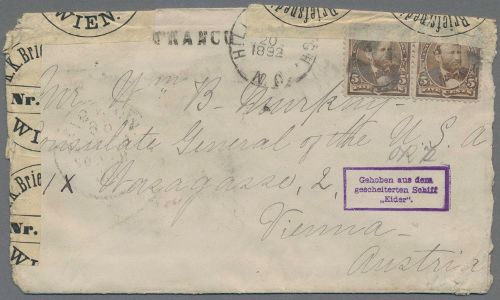 WIEN.
Briefsped
Briefsped
FRANCO
HILL
20
1892
N.C.
5 5 5 5
K.K. Brie
Nr.
WI
K. Brie
Nr.
W
Mr Wm B. Murphy
Consulate General of the U.S.A
IX Wasagasse, 2,
Vienna
Austria
Gehoben aus dem
gescheiterten Schiff
„Eider".